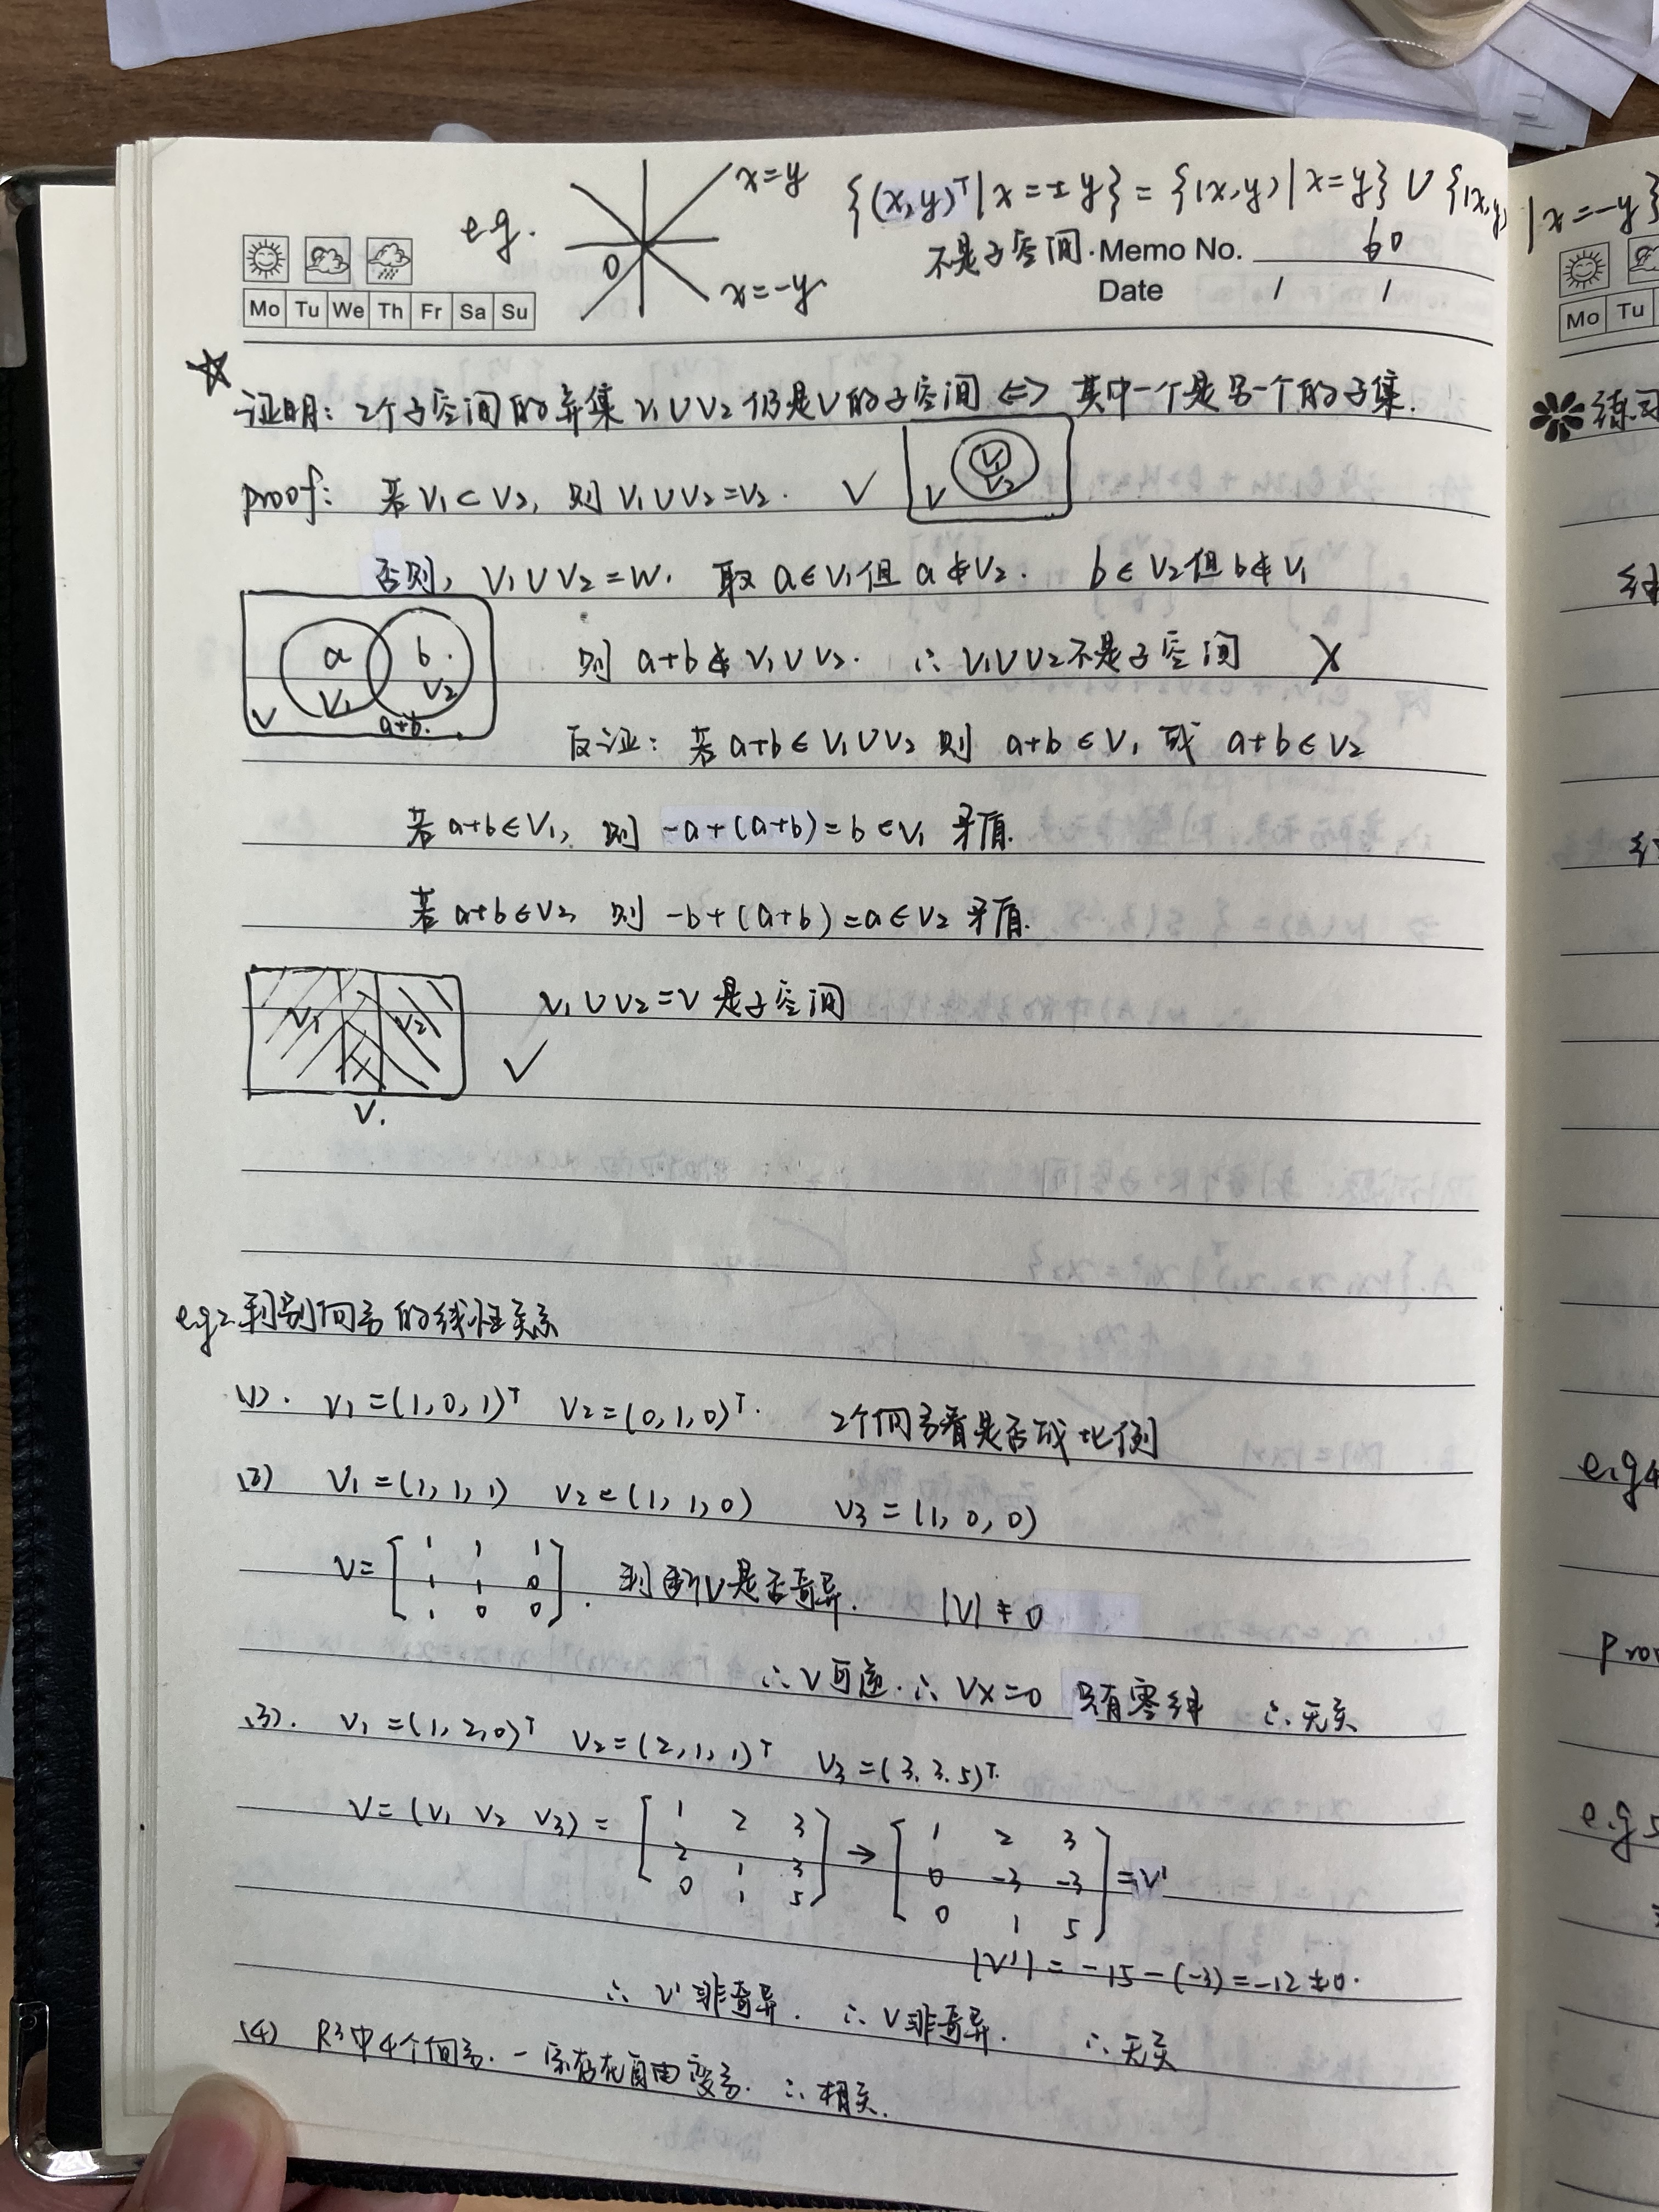 e.g.
x=y
0
x=-y
{(x,y)ᵀ|x=±y}={(x,y)|x=y}∪{(x,y)|x=-y}
不是子空间.
Memo No. 60
Date / /
Mo Tu We Th Fr Sa Su
☆
证明: 2个子空间的并集 V₁∪V₂仍是V的子空间 <=> 其中一个是另一个的子集.
proof: 若V₁⊂V₂, 则 V₁∪V₂=V₂. ✓
V V₁ V₂
否则, V₁∪V₂=W. 取 a∈V₁但 a∉V₂. b∈V₂但b∉V₁
a b.
V V₁ V₂
a+b.
则 a+b∉V₁∪V₂. ∴ V₁∪V₂不是子空间 ✗
反证: 若a+b∈V₁∪V₂ 则 a+b∈V₁ 或 a+b∈V₂
若a+b∈V₁, 则 -a+(a+b)=b∈V₁ 矛盾.
若a+b∈V₂, 则 -b+(a+b)=a∈V₂ 矛盾.
V₁ V₂
V.
V₁∪V₂=V 是子空间
✓
e.g2. 判别向量的线性关系
(1). V₁=(1,0,1)ᵀ V₂=(0,1,0)ᵀ. 2个向量看是否成比例
(2) V₁=(1,1,1) V₂=(1,1,0) V₃=(1,0,0)
V=[1 1 1
1 1 0
1 0 0]. 判断V是否奇异. |V|≠0
∴V可逆.∴Vx=0 只有零解 ∴无关
(3). V₁=(1,2,0)ᵀ V₂=(2,1,1)ᵀ V₃=(3.3.5)ᵀ.
V=(V₁ V₂ V₃)=[1 2 3
2 1 3
0 1 5] → [1 2 3
0 -3 -3
0 1 5]=V'
|V'|=-15-(-3)=-12≠0.
∴ V'非奇异. ∴V非奇异. ∴无关
(4) R³中4个向量.一定存在自由变量. ∴相关.
Mo Tu
练习
e.g4
e.g5